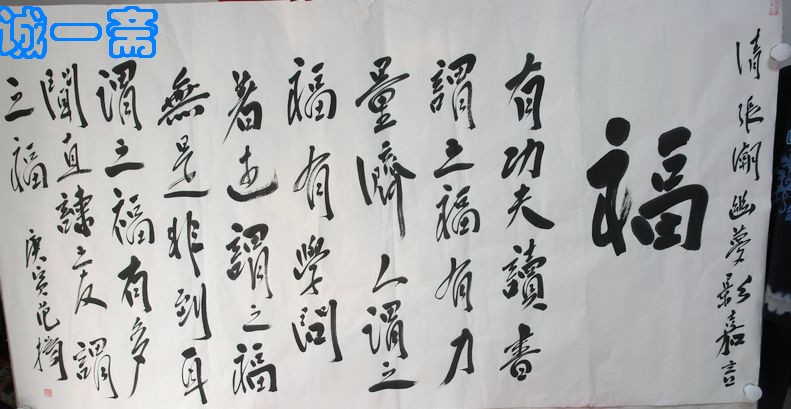 诚一斋
清張潮幽夢影嘉言
福
有功夫讀書
謂之福有力
量濟人謂之
福有學問
著述謂之福
無是非到耳
謂之福有多
聞直諒之友謂
之福
庚寅范